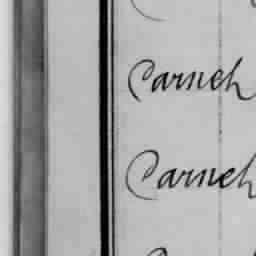 Carneh
Carneh